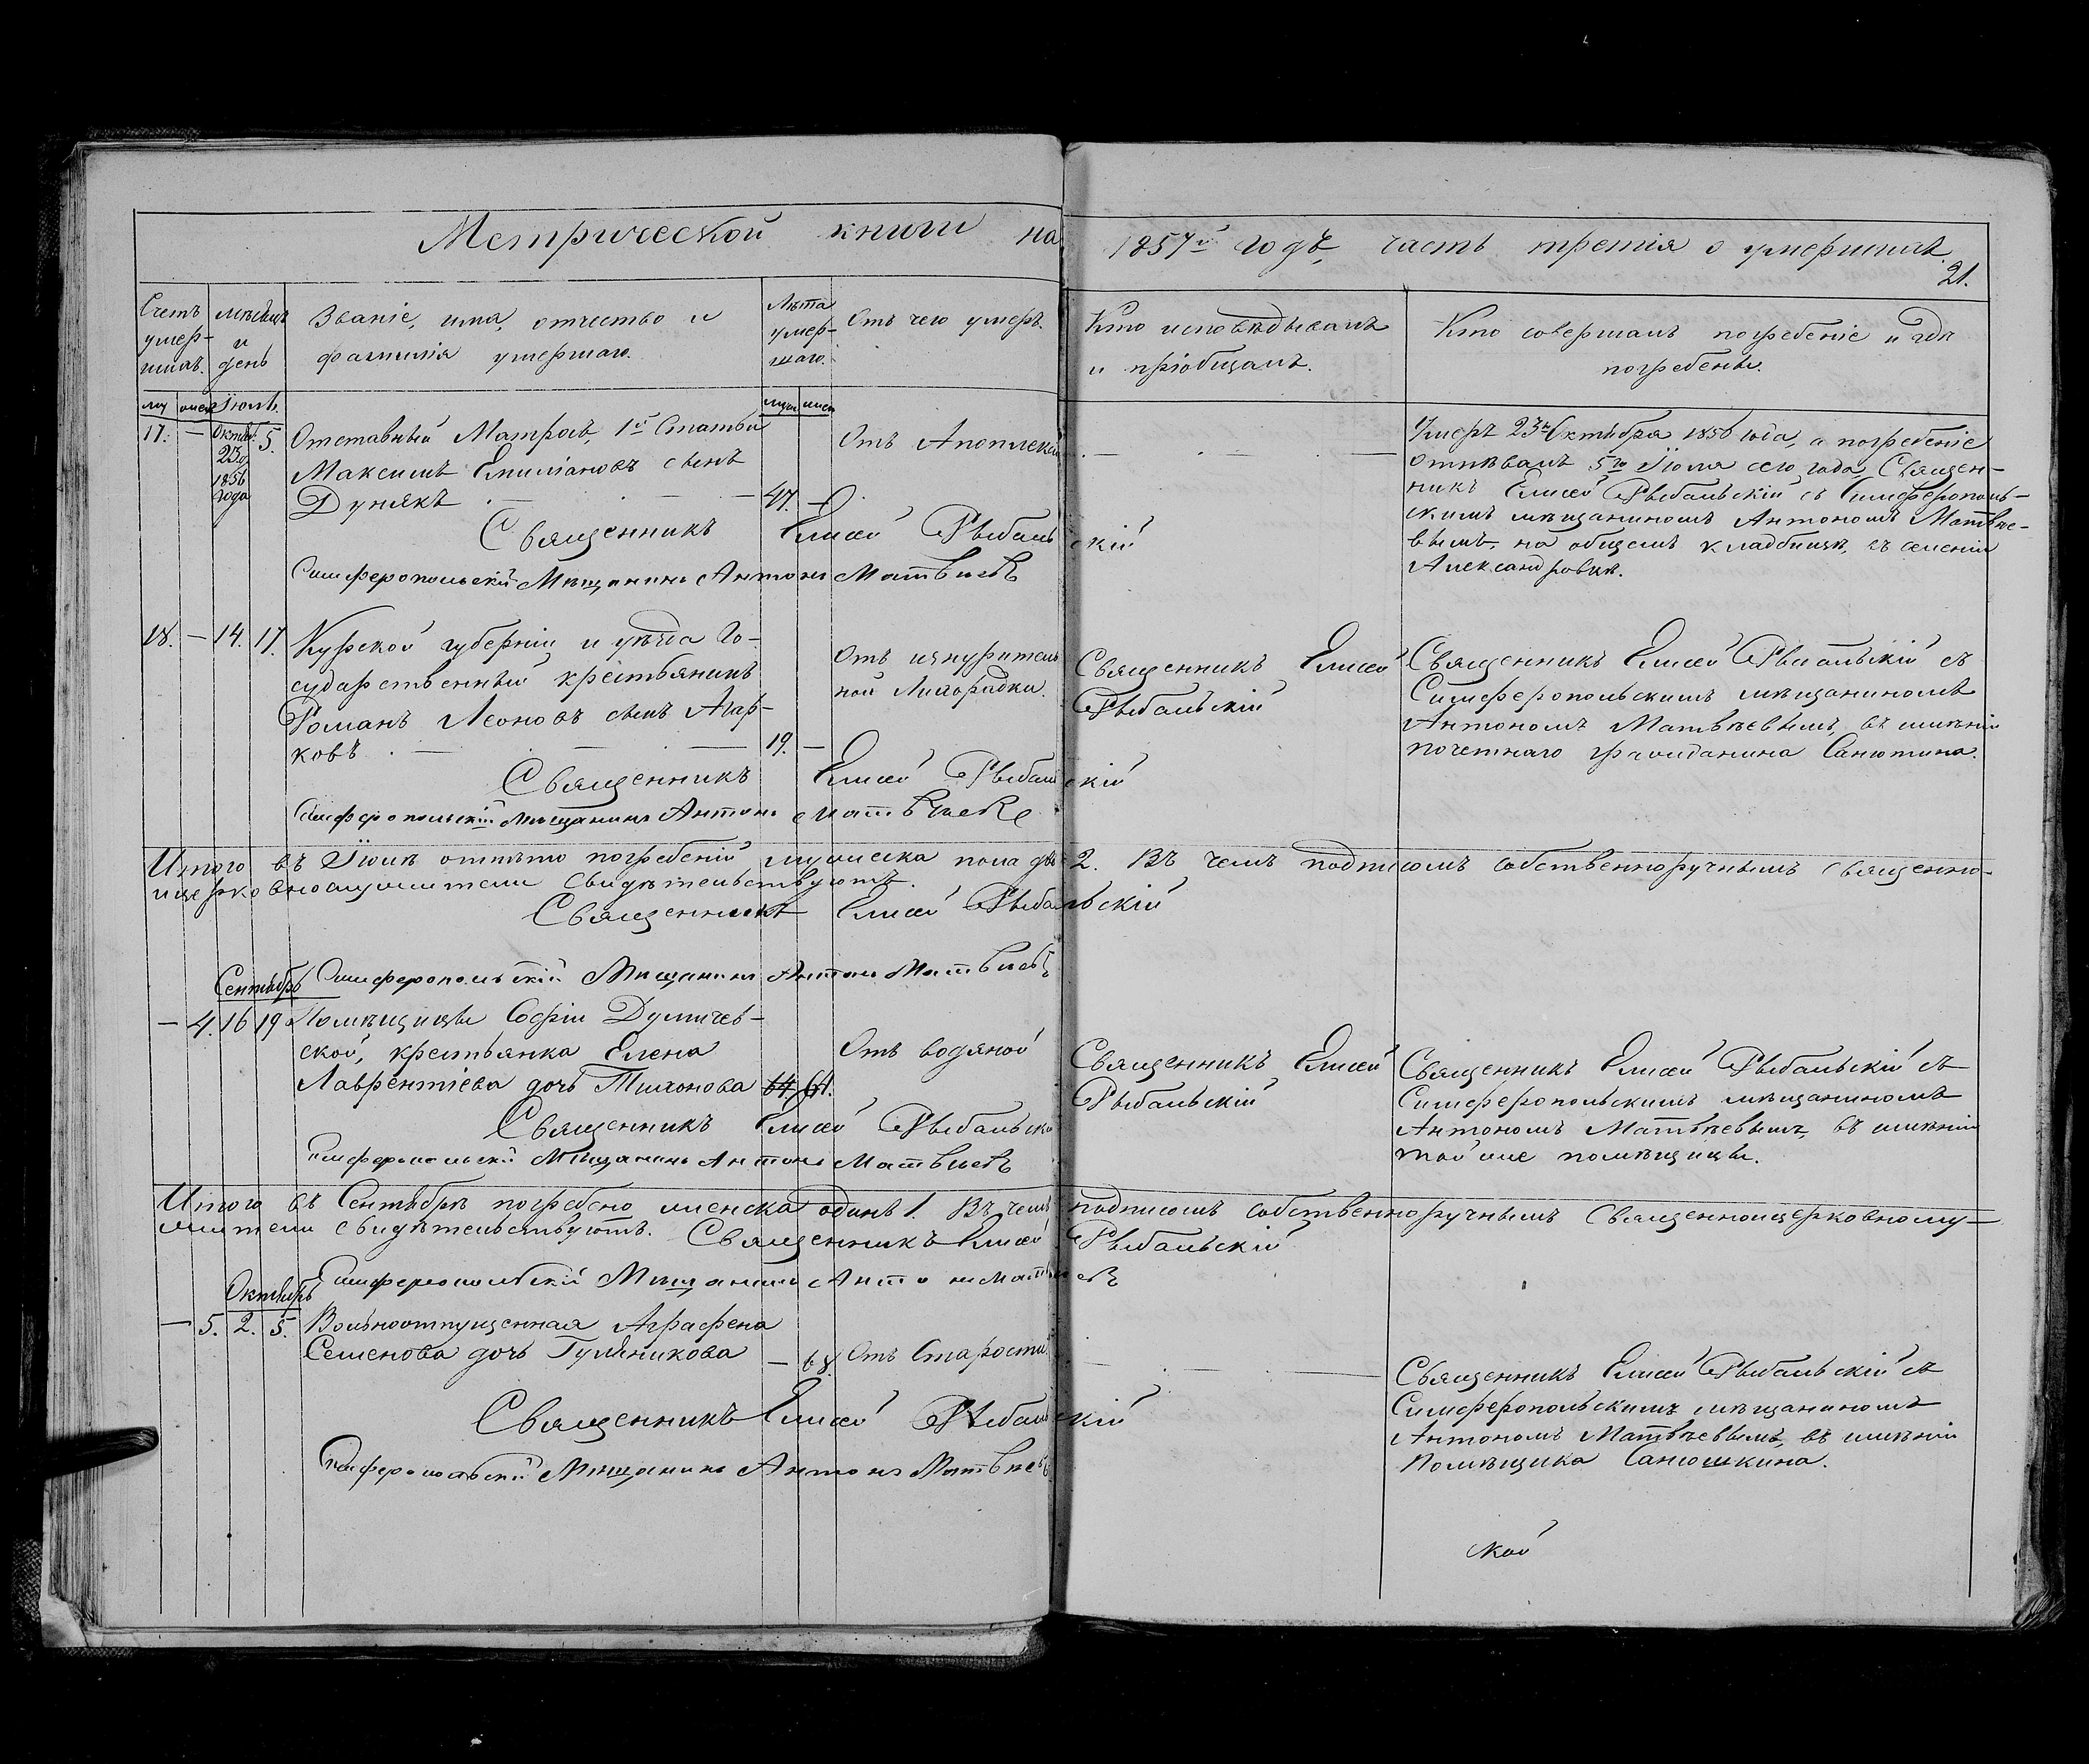 Метрической книги на 1857й годъ, часть третія о умершихъ.
21.
Счетъ умер-шихъ.
мѣсяцъ и день
Званіе, имя, отчество и фамилія умершаго.
Лѣта умер-шаго.
Отъ чего умеръ.
Кто исповѣдывалъ и пріобщалъ.
Кто совершалъ погребеніе и гдѣ погребены.
Іюль.
17. — Октяб. 23го 1856 года 5.
Отставный Матросъ, 1й Статьи
Максимъ Емиліановъ сынъ
Дунякъ — 47. —
Отъ Апоплексіи
Умеръ 23го Октября 1856 года, а погребеніе
отпѣвалъ 5го Іюля сего года, Священ-
никъ Елисей Рыбальскій съ Симферополь-
скимъ мѣщаниномъ Антономъ Матвѣе-
вымъ, на общемъ кладбищѣ, въ селеніи
Александровкѣ.
Священникъ Елисей Рыбальскій
Симферопольскій Мѣщанинъ Антонъ Матвѣевъ
18. — 14. 17.
Курской губерніи и уѣзда Го-
сударственный крестьянинъ
Романъ Леоновъ сынъ Агар-
ковъ — 19. —
Отъ изнуритель
ной Лихорадки.
Священникъ Елисей
Рыбальскій
Священникъ Елисей Рыбальскій съ
Симферопольскимъ мѣщаниномъ
Антономъ Матвѣевымъ, въ имѣніи
почетнаго гражданина Санютина.
Священникъ Елисей Рыбальскій
Симферопольскій Мѣщанинъ Антонъ Матвѣевъ
Итого въ Іюлѣ отпѣто погребеній мужеска пола два 2. Въ чемъ подписомъ собственноручнымъ священно-
и церковнослужители свидѣтельствуютъ.
Священникъ Елисей Рыбальскій
Симферопольскій Мѣщанинъ Антонъ Матвѣевъ
Сентябрь
— 4. 16 19
Помѣщицы Софіи Думичев-
ской, крестьянка Елена
Лаврентіева дочь Тихонова 64. 64.
Отъ водяной
Священникъ Елисей
Рыбальскій
Священникъ Елисей Рыбальскій съ
Симферопольскимъ мѣщаниномъ
Антономъ Матвѣевымъ, въ имѣніи
той же помѣщицы.
Священникъ Елисей Рыбальскій
Симферопольскій Мѣщанинъ Антонъ Матвѣевъ
Итого въ Сентябрѣ погребено женска одинъ 1. Въ чемъ подписомъ собственноручнымъ Священноцерковнослу-
жители свидѣтельствуютъ. Священникъ Елисей Рыбальскій
Симферопольскій Мѣщанинъ Антонъ Матвѣевъ
Октябрь
— 5. 2. 5.
Вольноотпущенная Аграфена
Семенова дочь — 68.
Отъ Старости
Священникъ Елисей Рыбальскій съ
Симферопольскимъ мѣщаниномъ
Антономъ Матвѣевымъ, въ имѣніи
Помѣщика Санюшкина.
Священникъ Елисей Рыбальскій
Симферопольскій Мѣщанинъ Антонъ Матвѣевъ
кой